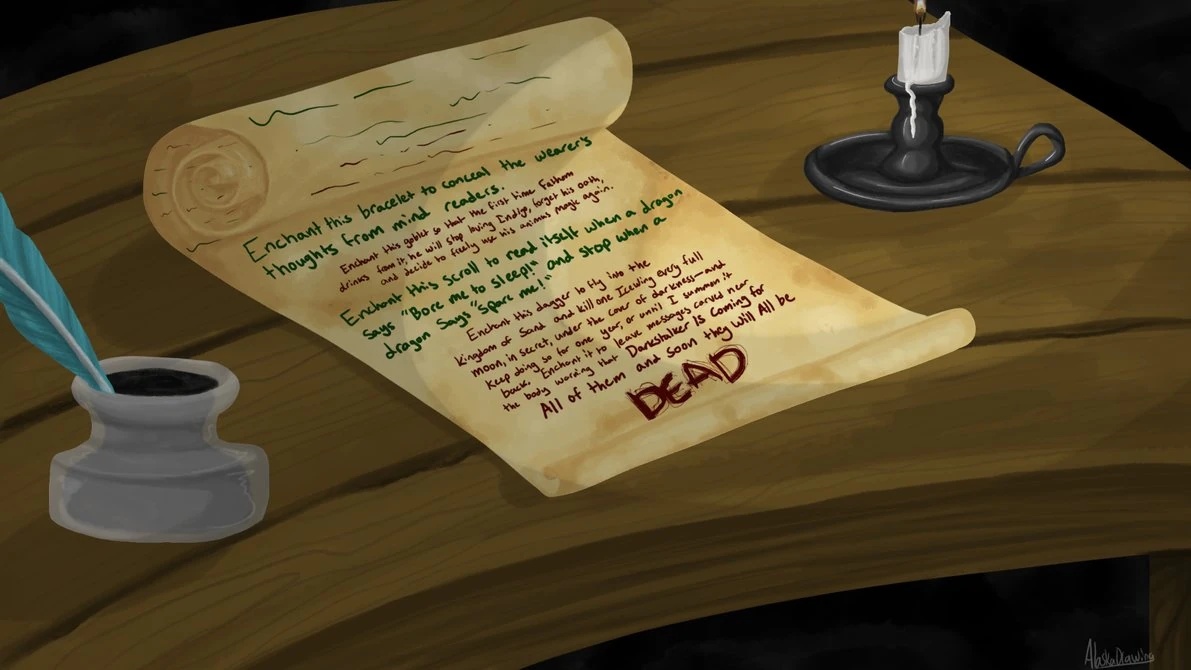 Enchant this bracelet to conceal the wearer's
thoughts from mind readers.
Enchant this goblet so that the first time Fathom
drinks from it, he will stop loving Indigo, forget his oath,
and decide to freely use his animus magic again.
Enchant this scroll to read itself when a dragon
says "Bore me to sleep!" and stop when a
dragon says "Spare me!"
Enchant this dagger to fly into the
Kingdom of Sand and kill one Icewing every full
moon, in secret, under the cover of darkness—and
keep doing so for one year, or until I summon it
back. Enchant it to leave messages carved near
the body warning that Darkstalker is coming for
All of them and soon they will All be
DEAD
AlaskaDrawing